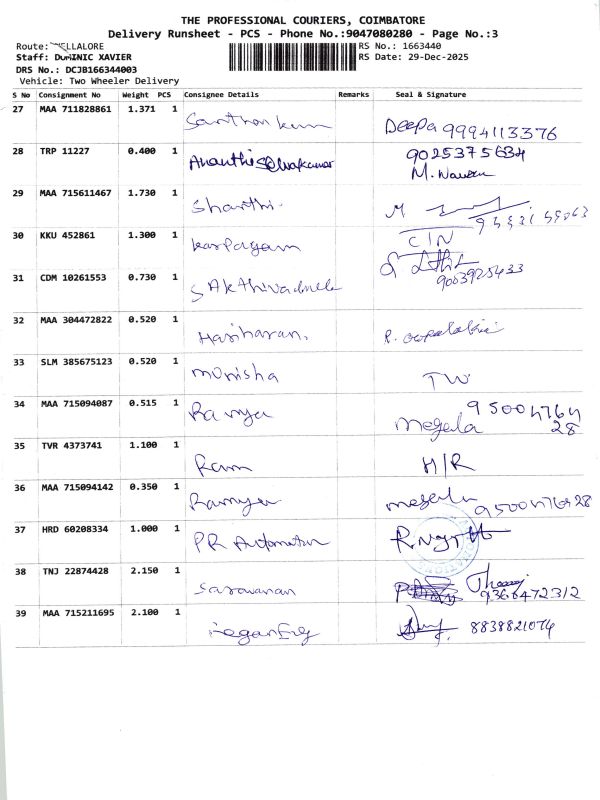 THE PROFESSIONAL COURIERS, COIMBATORE
Delivery Runsheet - PCS - Phone No.:9047080280 - Page No.:3
Route: VELLALORE RS No.: 1663440
Staff: DOMINIC XAVIER RS Date: 29-Dec-2025
DRS No.: DCJB166344003
Vehicle: Two Wheeler Delivery
S No Consignment No Weight PCS Consignee Details Remarks Seal & Signature
27 MAA 711828861 1.371 1 Santhan kum Deepa 9994113376
28 TRP 11227 0.400 1 Ananthi Selvakumar 9025375634
M. Naveen
29 MAA 715611467 1.730 1 Shanthi. M
30 KKU 452861 1.300 1 karpagam CIN
31 CDM 10261553 0.730 1 SAkthivadivel 9003925433
32 MAA 304472822 0.520 1 Hariharan.
33 SLM 385675123 0.520 1 monisha TW
34 MAA 715094087 0.515 1 Ramya megala 9500476428
35 TVR 4373741 1.100 1 Ram H/R
36 MAA 715094142 0.350 1 Ramya megala 9500476428
37 HRD 60208334 1.000 1 PR Automation
38 TNJ 22874428 2.150 1 Saravanan 9366472312
39 MAA 715211695 2.100 1 8838821074